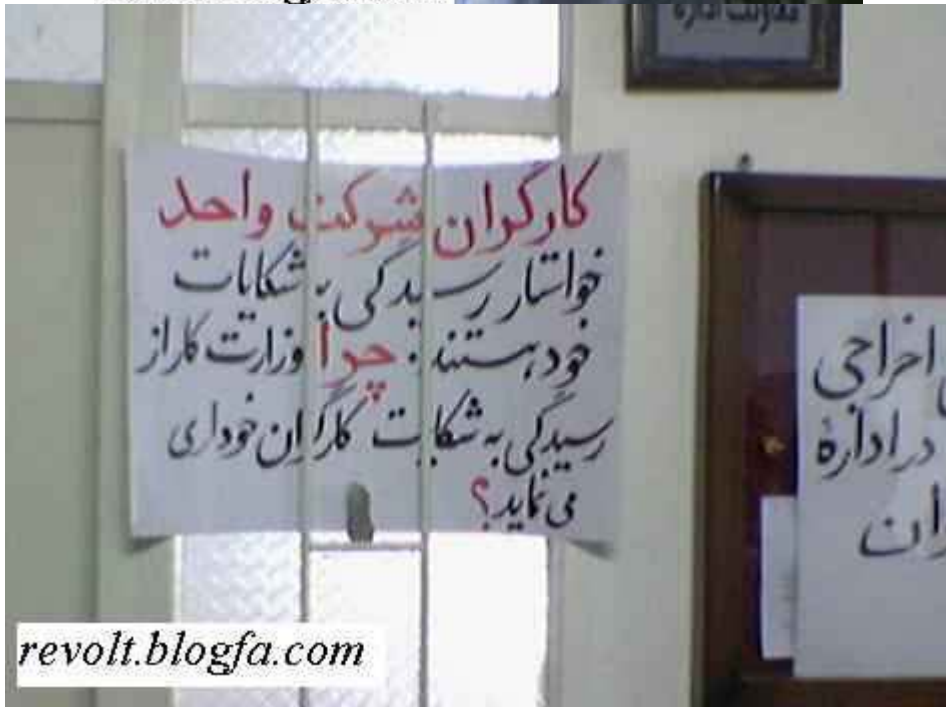 معاونت اداره
کارگران شرکت واحد
خواستار رسیدگی به شکایات
خود هستند. چرا وزارت کار از
رسیدگی به شکایت کارگران خودداری
می نماید؟
اخراجی
در ادارهٔ
revolt.blogfa.com